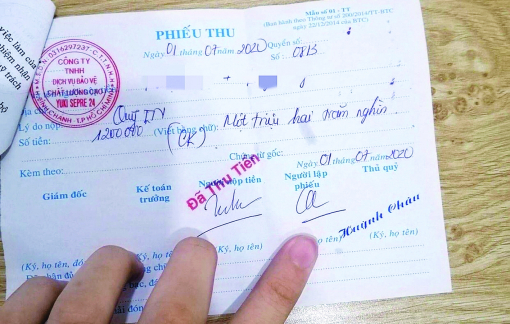 việc làm của
Mẫu số 01 - TT
(Ban hành theo Thông tư số 200/2014/TT-BTC
ngày 22/12/2014 của BTC)
PHIẾU THU
Ngày 01 tháng 07 năm 2020 Quyển số:
Số: 0813
M.S.D.N: 0316297237-C.T.T.N.H.H
CÔNG TY
TNHH
DỊCH VỤ BẢO VỆ
CHẤT LƯỢNG CAO
YUKI SEPRE 24
Địa chỉ
Lý do nộp: Quỹ
Số tiền: 1200 000 (Viết bằng chữ): Một triệu hai trăm nghìn
(CK)
Kèm theo: Chứng từ gốc:
Đã Thu Tiền
Ngày 01 tháng 07 năm 2020
Giám đốc Kế toán trưởng Người nộp tiền Người lập phiếu Thủ quỹ
Huỳnh Châu
(Ký, họ tên, đó (Ký, họ tên) (Ký, họ tên) ọ tên) (Ký, họ tên)